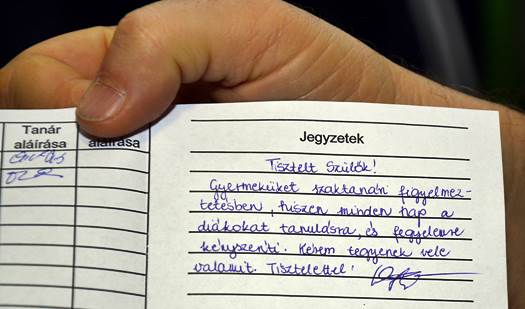 Tanár
aláírása
aláírása
Jegyzetek
Tisztelt Szülők!
Gyermeküket szaktanári figyelmez-
tetésben, hiszen minden nap a
diákokat tanulásra, és fegyelemre
kényszeríti. Kérem tegyenek vele
valamit. Tisztelettel: